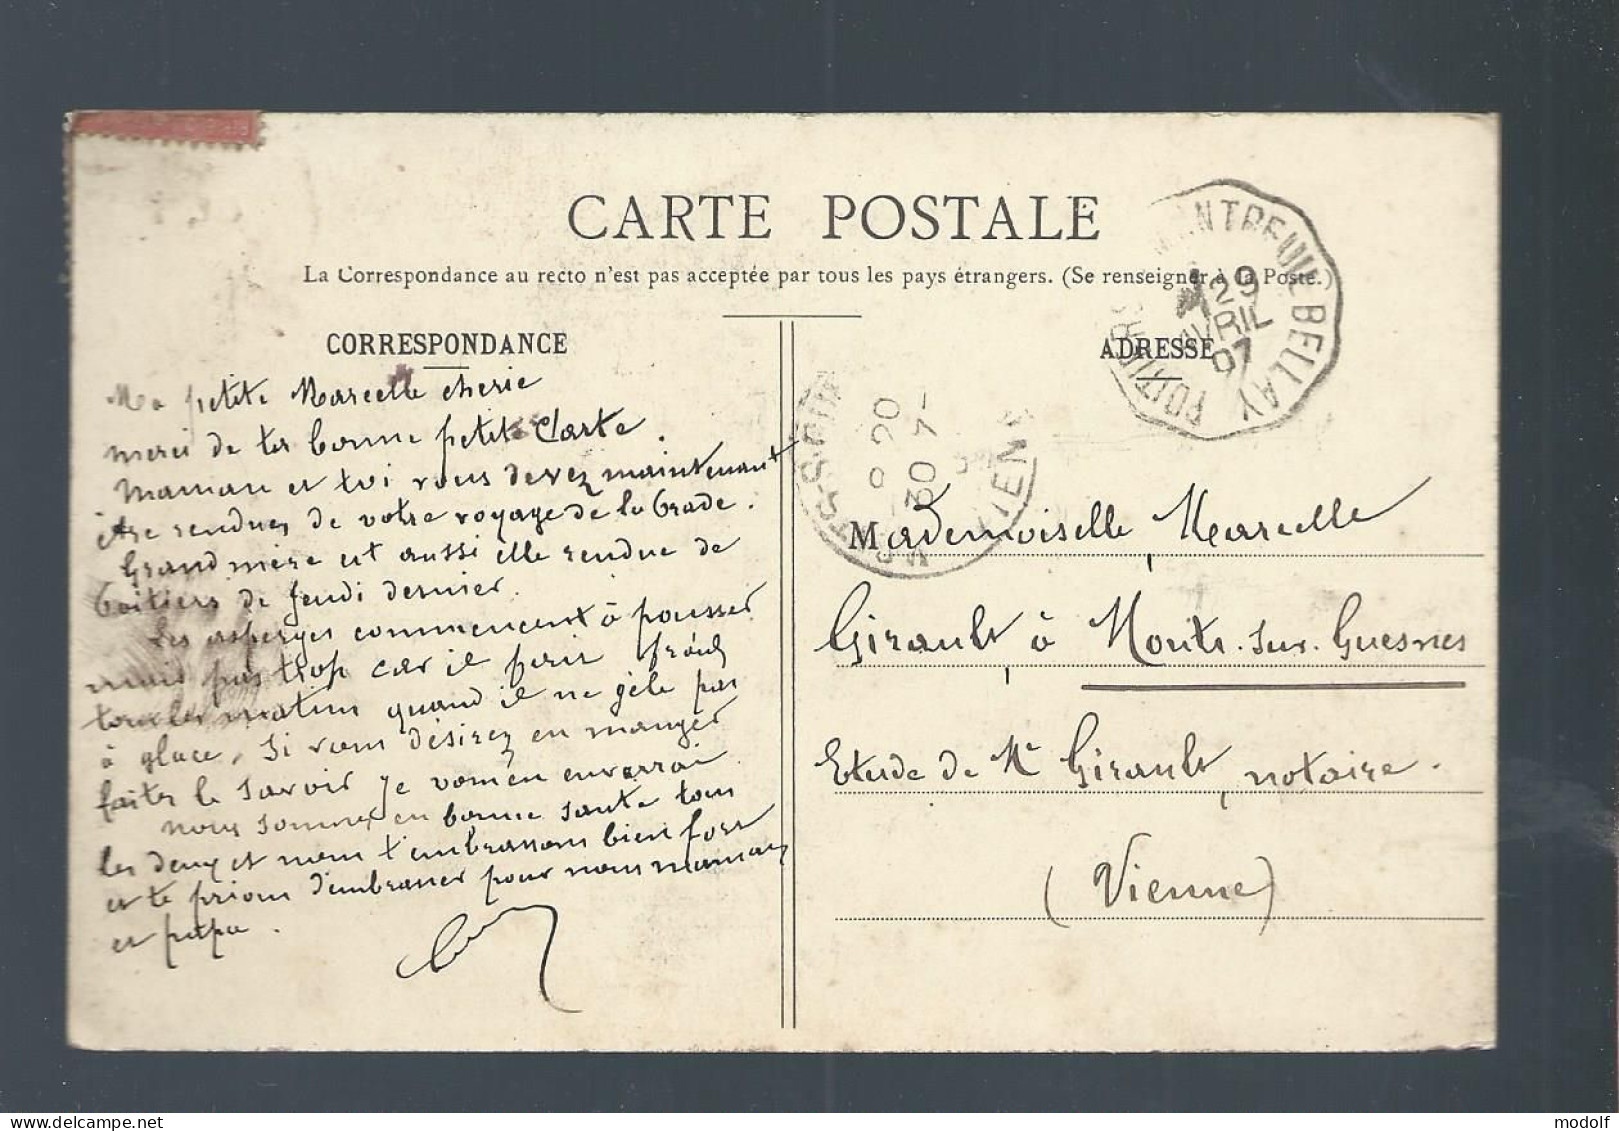 CARTE POSTALE
La Correspondance au recto n'est pas acceptée par tous les pays étrangers. (Se renseigner à la Poste.)
CORRESPONDANCE
Ma petite Marcelle cherie
merci de ta bonne petite Carte.
Maman et toi vous devez maintenant
être rendues de votre voyage de la
Grand mère est aussi elle rendue de
Poitiers de Jeudi dernier.
Les asperges commencent à pousser
mais pas trop car il fait froid
tous les matins quand il ne gèle pas
à glace, Si vous désirez en manger
faites le savoir je vous en enverrai
nous sommes en bonne sante tous
les deux et nous t'embrassons bien fort
et te prions d'embrasser pour nous maman
et papa.
ADRESSE
MONTREUIL BELLAY
POITIERS
29
AVRIL
07
30
Mademoiselle Marcelle
Girault, à Monts-sur-Guesnes
Etude de Me Girault, notaire.
(Vienne)
modolf